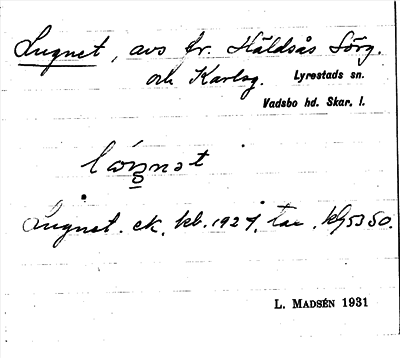 Lugnet, avs fr. Häldsås Sörg.
och Karlsg. Lyrestads sn.
Vadsbo hd. Skar. l.
Lugnet. ek. kb. 1927,
L. MADSÉN 1931